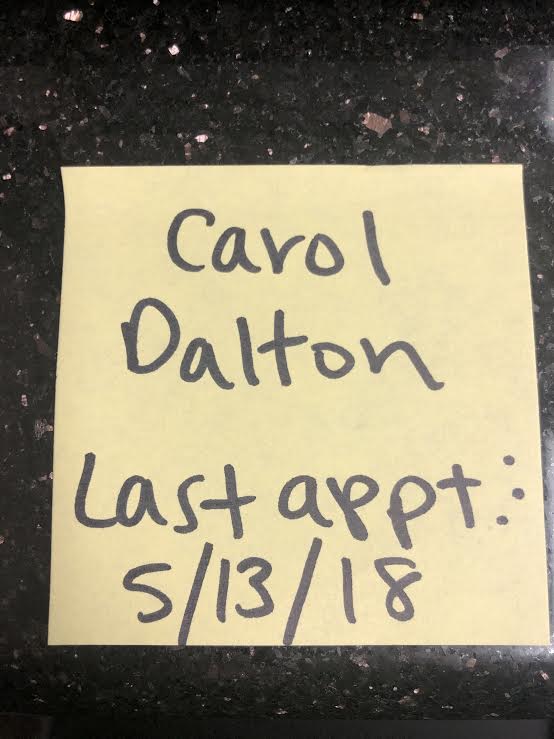 Carol
Dalton
Last appt:
5/13/18